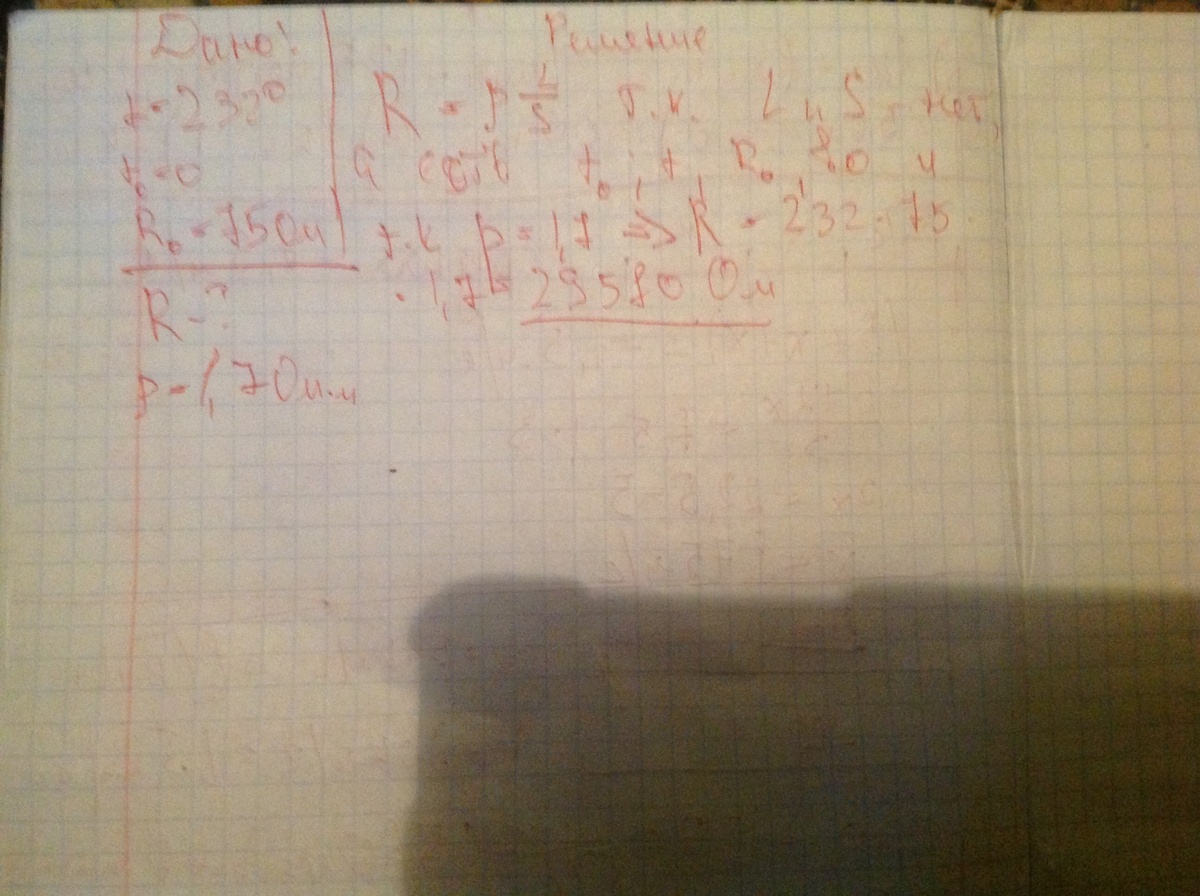 Дано:
t=232°
t₀=0
R₀=75Ом
R-?
p=1,7Ом.м
Решение
R = p L/S т.к. L и S - нет,
а есть t₀, t, R₀, то и
т.к p=1,7 => R = 232·75·
·1,7= 29580 Ом